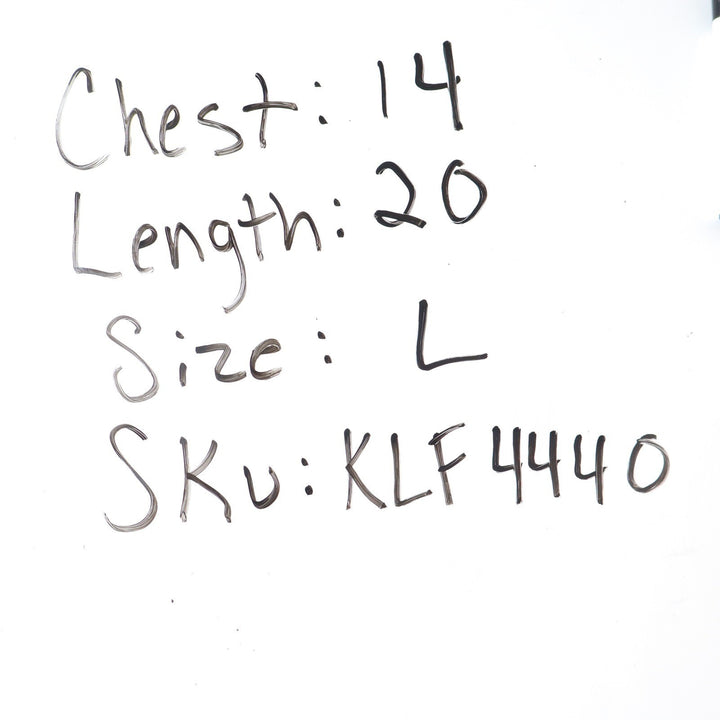 Chest: 14
Length: 20
Size: L
SKU: KLF4440